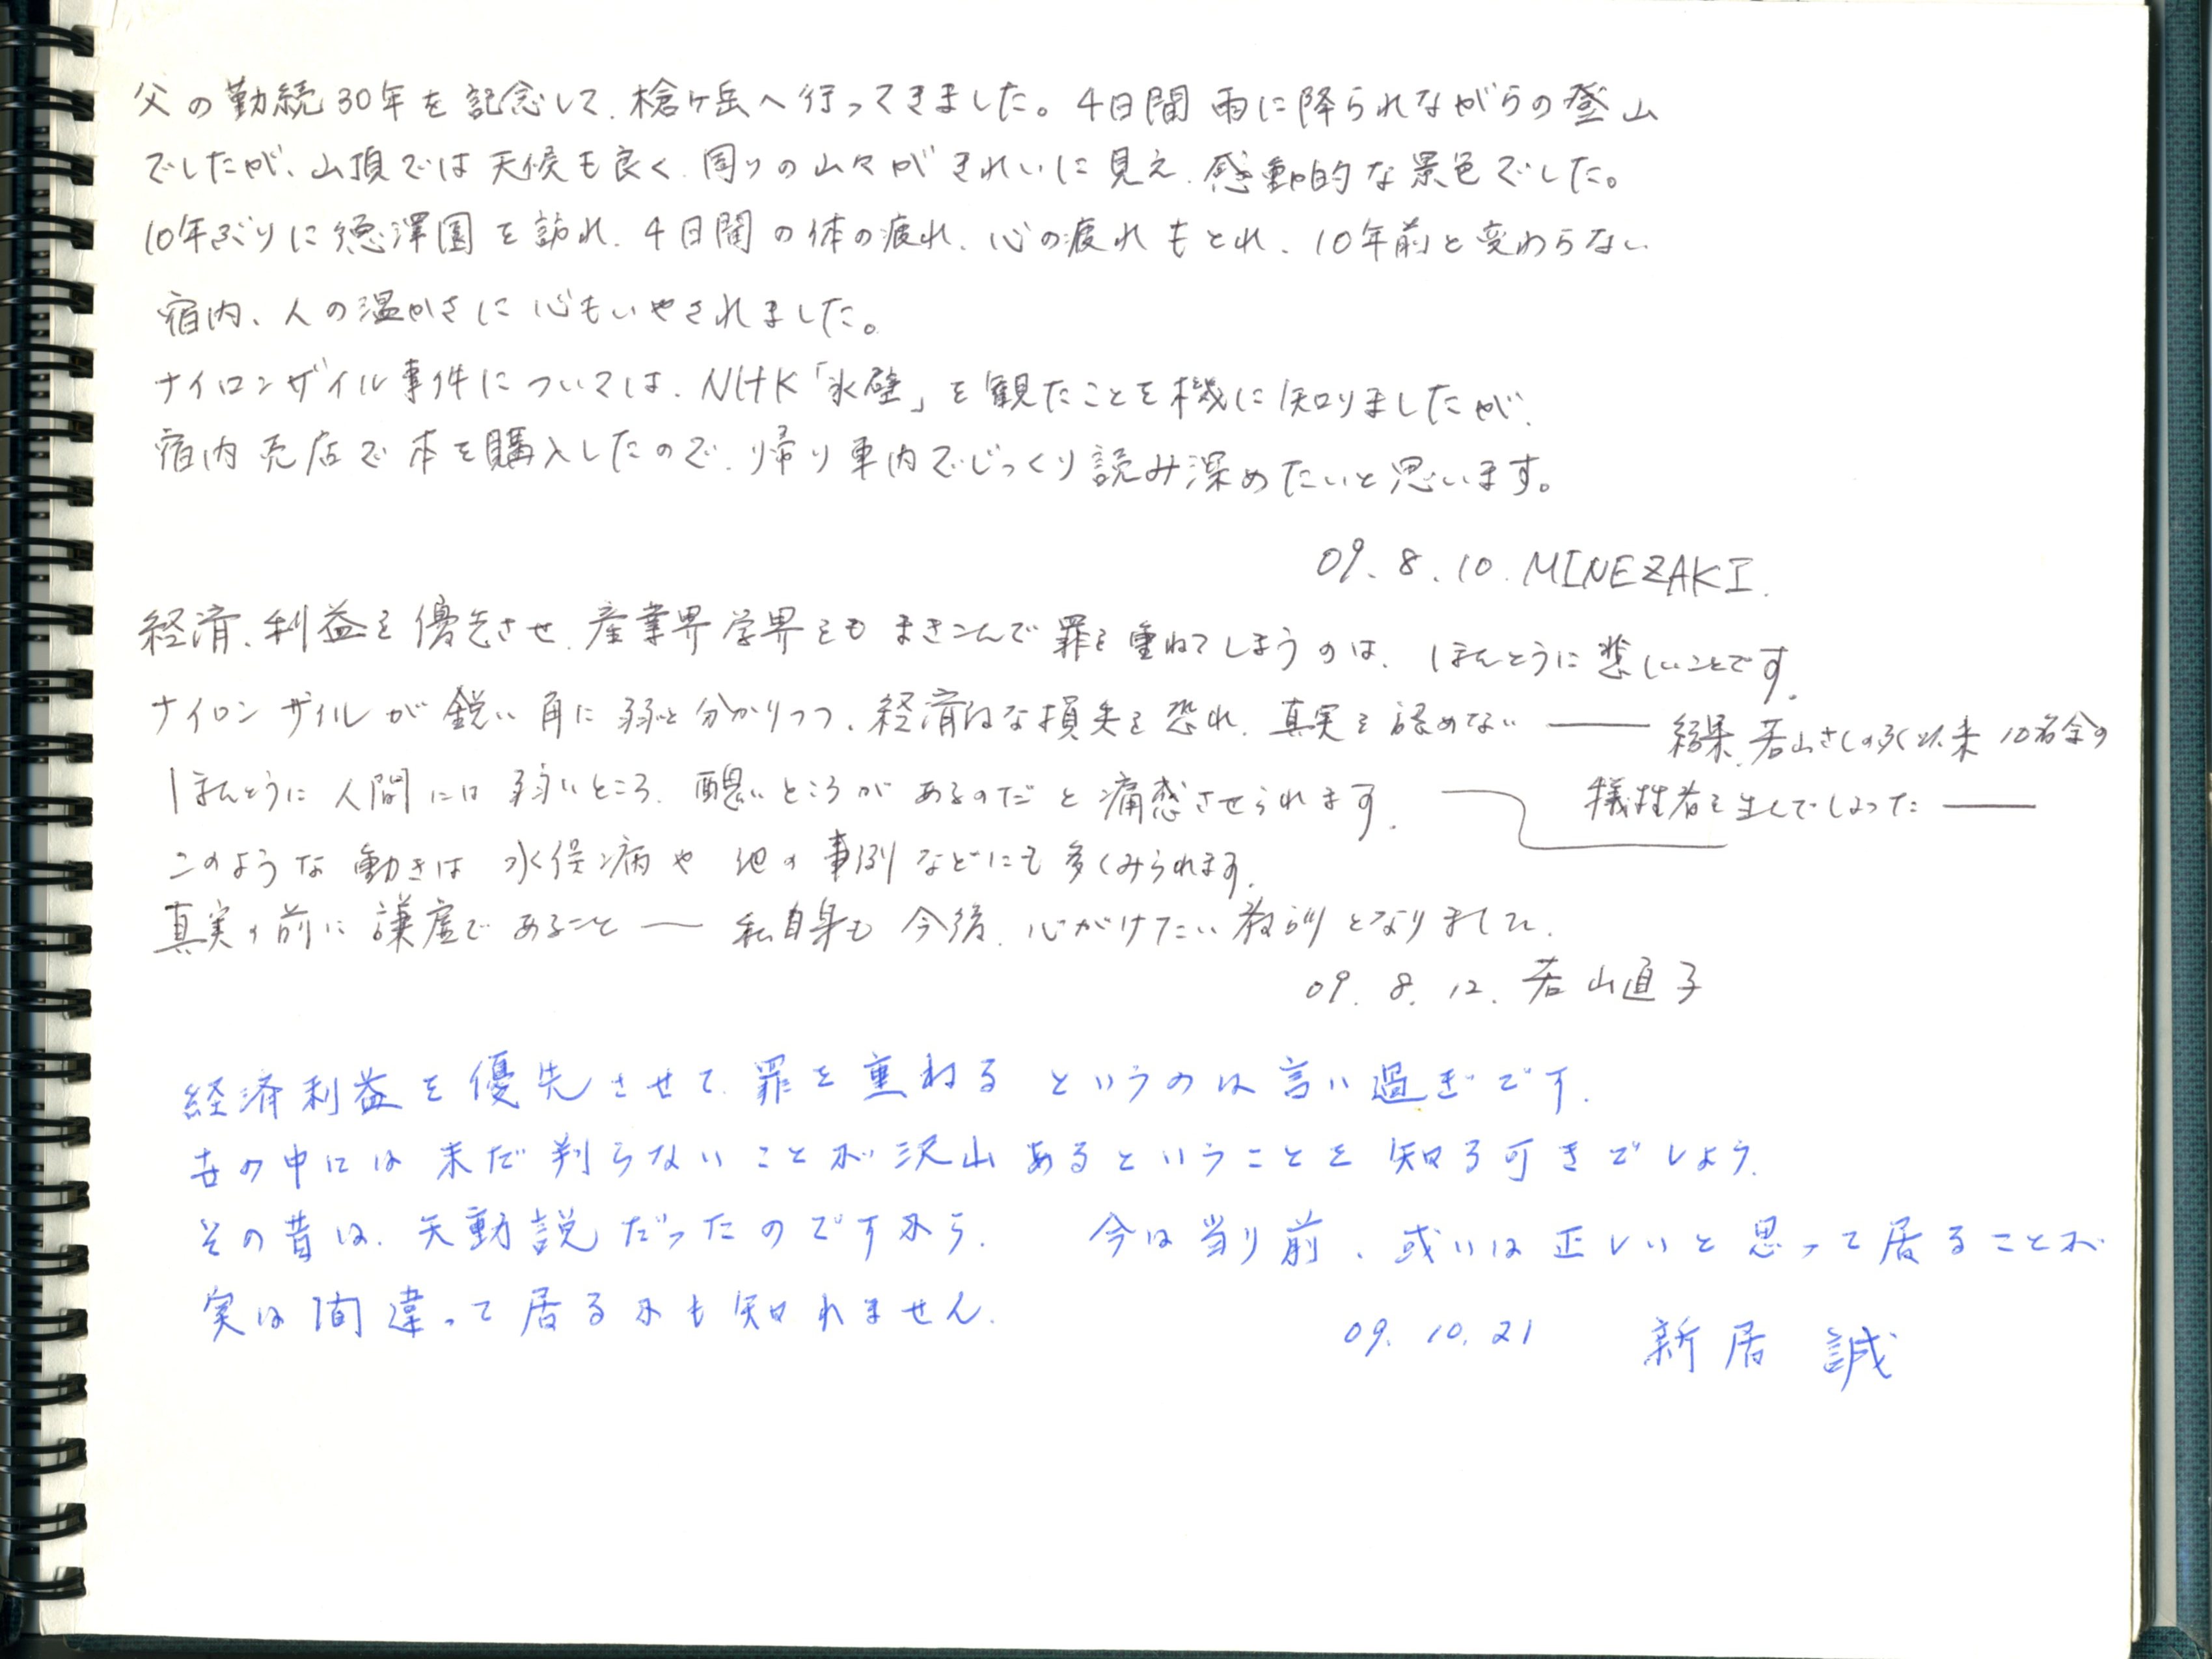 父の勤続30年を記念して、槍ヶ岳へ行ってきました。4日間雨に降られながらの登山
でしたが、山頂では天候も良く、周りの山々がきれいに見え、感動的な景色でした。
10年ぶりに徳澤園を訪れ、4日間の体の疲れ、心の疲れもとれ、10年前と変わらない
宿内、人の温かさに心もいやされました。
ナイロンザイル事件については、NHK「氷壁」を観たことを機に知りましたが、
宿内売店で本を購入したので、帰り車内でじっくり読み深めたいと思います。
09.8.10.MINEZAKI.
経済、利益を優先させ、産業界学界をもまきこんで罪を重ねてしまうのは、ほんとうに悲しいことです。
ナイロンザイルが鋭い角に弱いと分かりつつ、経済的な損失を恐れ、真実を認めない ——
結果、若山さんの死以来10名余の
犠牲者を生んでしまった ——
ほんとうに人間には弱いところ、醜いところがあるのだと痛感させられます。
このような動きは水俣病や他の事例などにも多くみられます。
真実の前に謙虚であること — 私自身も今後、心がけたい教訓となりました。
09.8.12.若山直子
経済利益を優先させて、罪を重ねるというのは言い過ぎです。
世の中には未だ判らないことが沢山あるということを知る可きでしょう。
その昔は、天動説だったのですから。 今は当り前、或いは正しいと思って居ることが
実は間違って居るかも知れません。
09.10.21 新居 誠